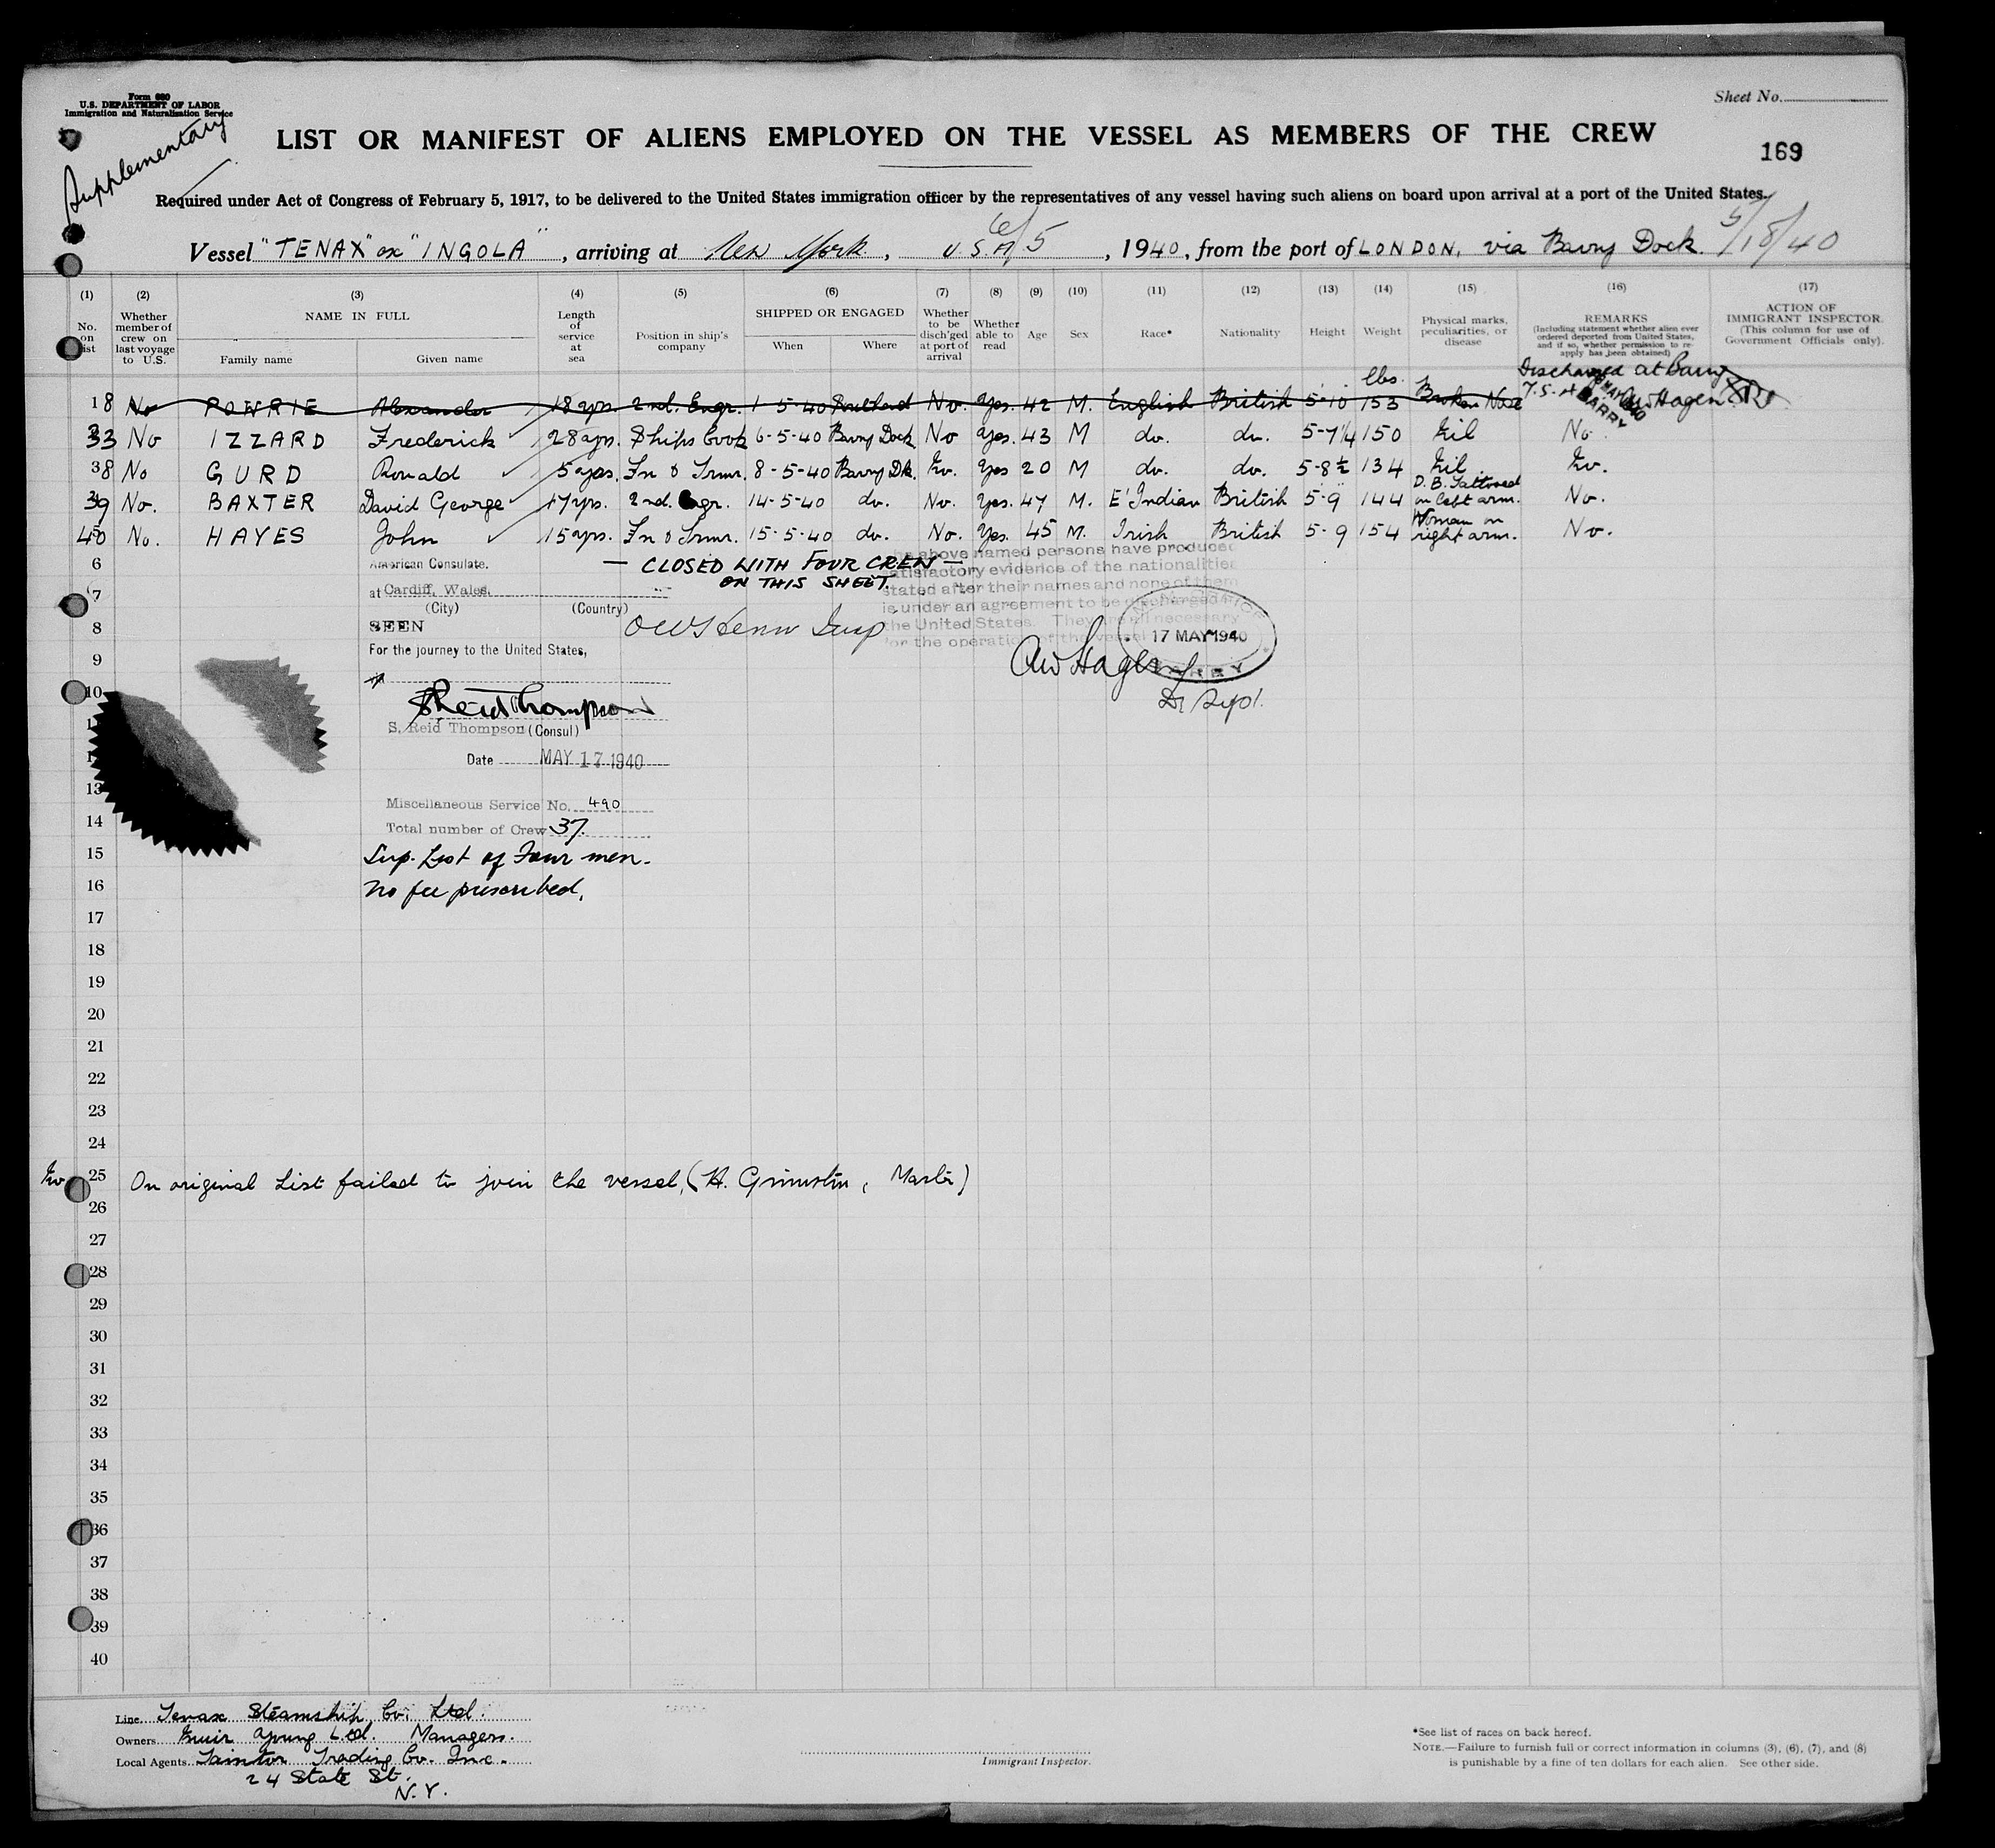 Form 680
U.S. DEPARTMENT OF LABOR
Immigration and Naturalization Service
Supplementary
Sheet No.
LIST OR MANIFEST OF ALIENS EMPLOYED ON THE VESSEL AS MEMBERS OF THE CREW
169
Required under Act of Congress of February 5, 1917, to be delivered to the United States immigration officer by the representatives of any vessel having such aliens on board upon arrival at a port of the United States.
Vessel "TENAX" ex "INGOLA", arriving at New York, U.S.A. 6/5, 1940, from the port of LONDON, via Barry Dock. 5/18/40
(1) (2) (3) (4) (5) (6) (7) (8) (9) (10) (11) (12) (13) (14) (15) (16) (17)
No. on list
Whether member of crew on last voyage to U.S.
NAME IN FULL
Family name
Given name
Length of service at sea
Position in ship's company
SHIPPED OR ENGAGED
When
Where
Whether to be disch'ged at port of arrival
Whether able to read
Age
Sex
Race*
Nationality
Height
Weight
Physical marks, peculiarities, or disease
REMARKS
(Including statement whether alien ever ordered deported from United States, and if so, whether permission to re-apply has been obtained)
ACTION OF IMMIGRANT INSPECTOR.
(This column for use of Government Officials only).
lbs.
Discharged at Barry
18 No POWRIE Alexander 18 yrs. 2nd. Engr. 1-5-40 No. Yes. 42 M. English British 5-10 153 Broken Nose
33 No IZZARD Frederick 28 yrs. Ships Cook 6-5-40 Barry Dock No Yes. 43 M do. do. 5-7 1/4 150 Nil No.
38 No GURD Ronald 5 yrs. Fn & Trmr. 8-5-40 Barry Dk. No. Yes 20 M do. do. 5-8½ 134 Nil No.
39 No. BAXTER David George 17 yrs. 2nd. Engr. 14-5-40 do. No. Yes. 47 M. E'Indian British 5-9 144 D.B. Tattooed on left arm. No.
40 No. HAYES John 15 yrs. Fn & Trmr. 15-5-40 do. No. Yes 45 M. Irish British 5-9 154 Woman on right arm. No.
— CLOSED WITH FOUR CREW —
ON THIS SHEET.
American Consulate.
at Cardiff, Wales.
(City) (Country)
SEEN
For the journey to the United States,
S. Reid Thompson (Consul)
Date MAY 17 1940
Miscellaneous Service No. 490
Total number of Crew 37.
Sup. List of Four men.
No fee prescribed.
The above named persons have produced
satisfactory evidence of the nationalities
stated after their names and none of them
is under an agreement to be discharged in
the United States. They are all necessary
for the operation of the vessel
17 MAY 1940
BARRY
6
7
8
9
10
13
14
15
16
17
18
19
20
21
22
23
24
No 25 On original List failed to join the vessel, (H. Grimston, Master)
26
27
28
29
30
31
32
33
34
35
36
37
38
39
40
Line Tenax Steamship Co. Ltd.
Owners Muir Young Ltd. Managers.
Local Agents Taintor Trading Co. Inc.
24 State St.
N.Y.
Immigrant Inspector.
*See list of races on back hereof.
NOTE.—Failure to furnish full or correct information in columns (3), (6), (7), and (8)
is punishable by a fine of ten dollars for each alien. See other side.